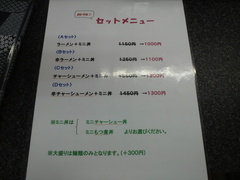 セットメニュー
(Aセット)
ラーメン+ミニ丼 1150円 →1000円
(Bセット)
辛ラーメン+ミニ丼 1250円 →1100円
(Cセット)
チャーシューメン+ミニ丼 →1200円
(Dセット)
辛チャーシューメン+ミニ丼 1450円 →1300円
※ミニ丼は
ミニチャーシュー丼
ミニもつ煮丼 よりお選びください。
※大盛りは麺類のみとなります。(+300円)